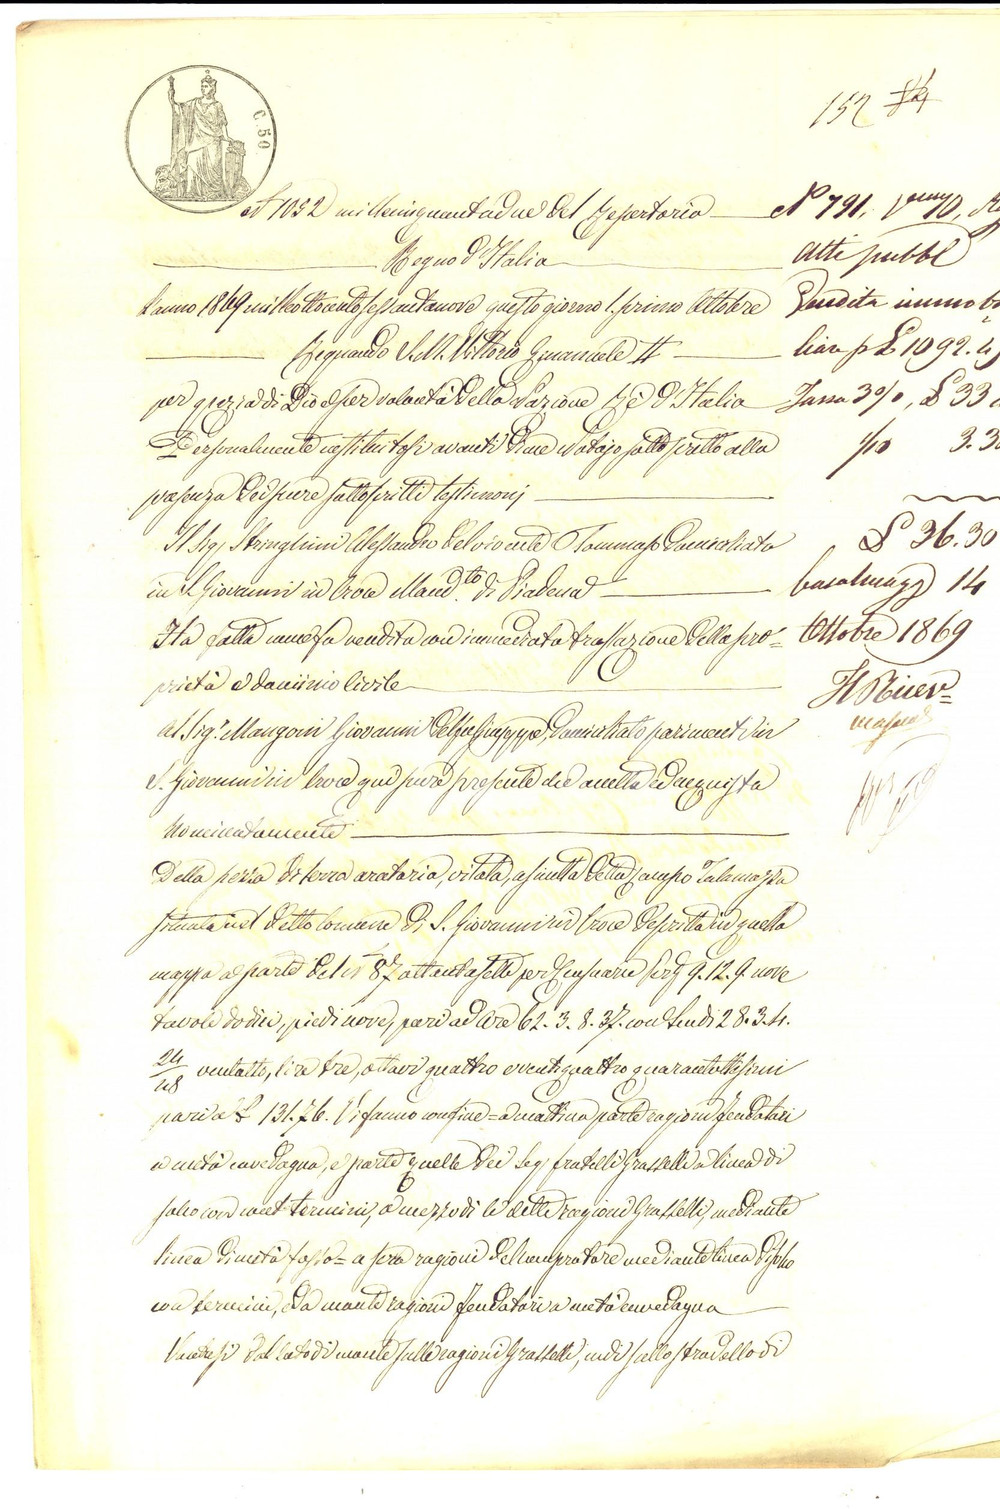 C. 50
152
N° 1052 millecinquantadue del Repertorio
Regno d'Italia
L'anno 1869 milleottocentosessantanove questo giorno 1. primo Ottobre
Regnando S. M. Vittorio Emanuele II
per grazia di Dio e per volontà della Nazione Rè d'Italia
Personalmente costituitosi avanti di me Notajo sottoscritto alla
presenza dei pure sottoscritti testimonj
Il Sig. Stringhini Alessandro del vivente Tommaso domiciliato
in S. Giovanni in Croce Mand.to di Piadena
Ha fatto come fa vendita con immediata traslazione della pro=
prietà e dominio civile
Al Sig.r Mangoni Giovanni del fu Giuseppe, domiciliato parimenti in
S. Giovanni in Croce qui pure presente che accetta ed acquista
Nominatamente
Della pezza di terra aratoria, vitata, asciutta detta Campo Talamazza
situata nel detto Comune di S. Giovanni in Croce descritta in quella
mappa a parte del n° 87 ottantasette per Censuarie pert. 9. 12. 9. nove
tavole dodici, piedi nove, pari ad Are 62. 3. 8. 37. con scudi 28. 3. 4.
24/48 ventotto, lire tre, ottavi quattro e ventiquattro quarantottesimi
pari a £ 131.76. Vi fanno confine = a mattina parte ragioni Fendatari
a metà cavedagna, e parte quelle dei Sig. fratelli Grasselli a linea di
solco con met termini, a mezzodì le dette ragioni Grasselli, mediante
linea di metà fosso = a sera ragioni del compratore mediante linea di solco
con termini, ed a monte ragioni Fendatari a metà cavedagna
dal lato di monte sulle ragioni Grasselli, indi sullo stradello di
N° 791. 10,
Atti pubbl
Vendita immobi
liare p £ 1092.
Tassa 3 %, £ 33
1/10 3.30
£ 36.30
Casalmagg 14
Ottobre 1869
Il Ricev=